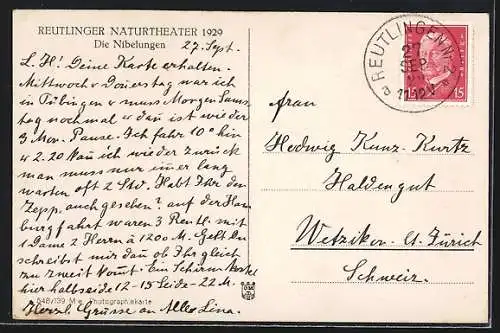 REUTLINGER NATURTHEATER 1929
Die Nibelungen
27. Sept.
L. H! Deine Karte erhalten.
Mittwoch u Donerstag war ich
in Tübingen u muss Morgen Sams-
tag nochmal u dan ist wieder
3 Mon. Pause. Ich fahr 10° hin
u 2.20 kan ich wieder zurück
man muss nur imer lang
warten oft 2 Std. Habt Ihr den
Zepp. auch gesehen? auf der Ham
burgfahrt waren 3 Reutl. mit
1 Dame 2 Herrn à 1200 M. Gelt Du
schreibst mir dan ob Ihr gleich
zu zweit komt. Ein Schirm kostet
hier halbseide 12-15 Seide - 22 M.
Herzl. Grüsse an Alle Lina.
648/139 M.e. Photographiekarte
REUTLINGEN
27
SEP
11-12 V
a
15
Frau
Hedwig Kunz-Kurtz
Haldengut
Wetzikon Ct. Zürich
Schweiz.